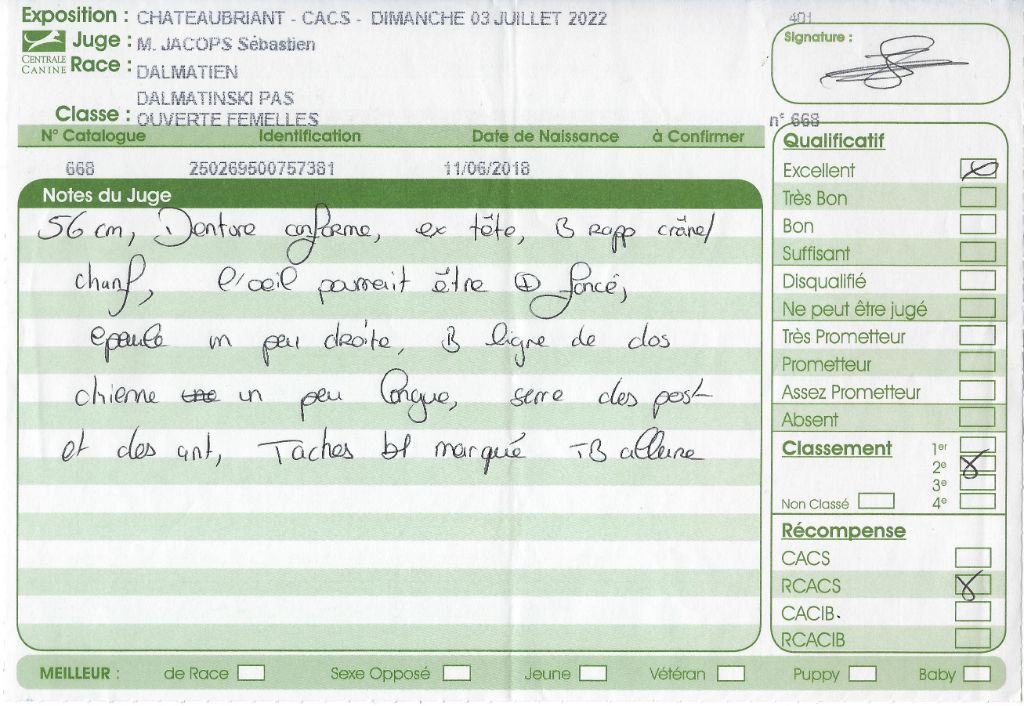 Exposition : CHATEAUBRIANT - CACS - DIMANCHE 03 JUILLET 2022
401
CENTRALE CANINE
Juge : M. JACOPS Sébastien
Race : DALMATIEN
DALMATINSKI PAS
Classe : OUVERTE FEMELLES
Signature :
n° 668
N° Catalogue Identification Date de Naissance à Confirmer
668 250269500757381 11/06/2018
Notes du Juge
56 cm, Denture conforme, ex tête, B rapp crâne/
chanf, l'oeil pourrait être + foncé,
epaule un peu droite, B ligne de dos
chienne un peu longue, serre des post
et des ant, Taches bl marqué TB allure
Qualificatif
Excellent
Très Bon
Bon
Suffisant
Disqualifié
Ne peut être jugé
Très Prometteur
Prometteur
Assez Prometteur
Absent
Classement 1er
2e
3e
Non Classé 4e
Récompense
CACS
RCACS
CACIB.
RCACIB
MEILLEUR : de Race Sexe Opposé Jeune Vétéran Puppy Baby